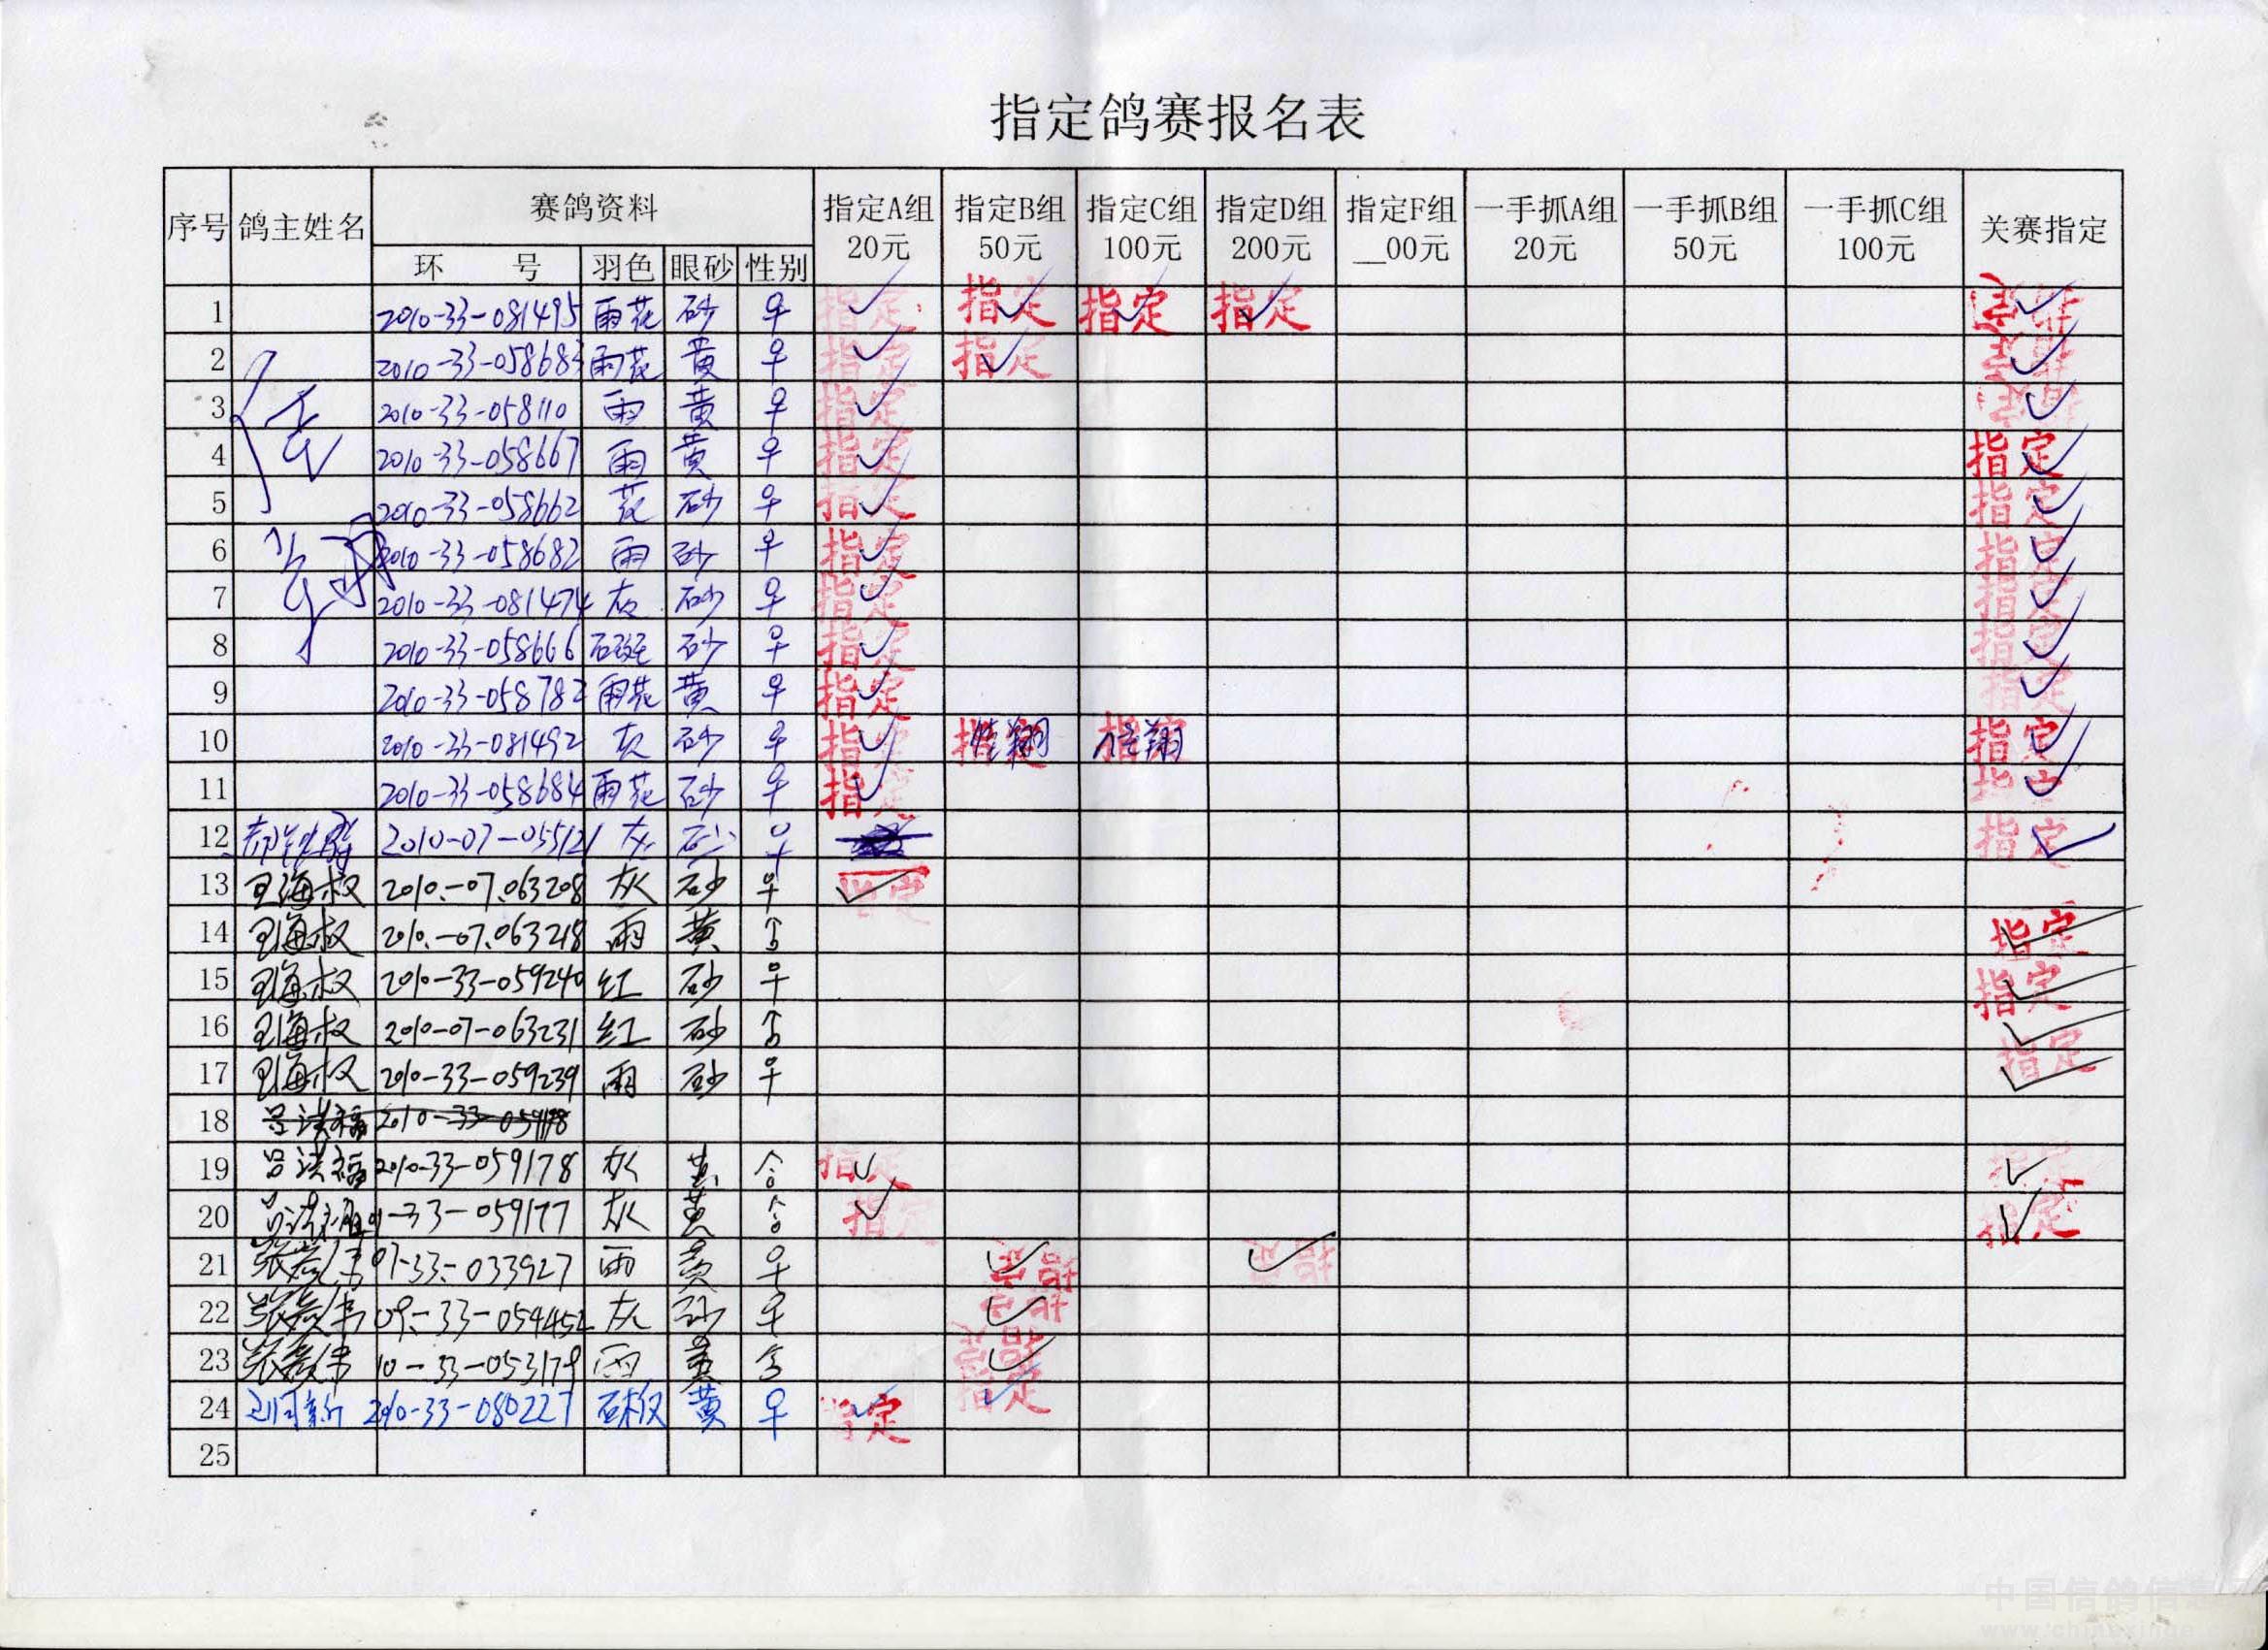 指定鸽赛报名表
序号 鸽主姓名 赛鸽资料 指定A组 20元 指定B组 50元 指定C组 100元 指定D组 200元 指定F组 __00元 一手抓A组 20元 一手抓B组 50元 一手抓C组 100元 关赛指定
环 号 羽色 眼砂 性别
1 2010-33-081495 雨花 砂 ♀ 指定 ✓ 指定 ✓ 指定 ✓ 指定 ✓ ✓
2 2010-33-058683 雨花 黄 ♀ 指定 ✓ 指定 ✓ ✓
3 2010-33-058110 雨 黄 ♀ 指定 ✓ ✓
4 2010-33-058667 雨 黄 ♀ 指定 ✓ 指定 ✓
5 2010-33-058662 花 砂 ♀ 指定 ✓ 指定 ✓
6 2010-33-058682 雨 砂 ♀ 指定 ✓ 指定 ✓
7 2010-33-081474 灰 砂 ♀ 指定 ✓ 指定 ✓
8 2010-33-058666 石斑 砂 ♀ 指定 ✓ 指定 ✓
9 2010-33-058782 雨花 黄 ♀ 指定 ✓ 指定 ✓
10 2010-33-081492 灰 砂 ♀ 指定 ✓ 指定 指定 指定 ✓
11 2010-33-058684 雨花 砂 ♀ 指定 ✓ 指定 ✓
12 2010-07-055121 灰 砂 ♀ 指定 ✓
13 王海权 2010.-07.063208 灰 砂 ♀ 指定 ✓
14 王海权 2010.-07.063218 雨 黄 ♂ 指定 ✓
15 王海权 2010-33-059240 红 砂 ♀ 指定 ✓
16 王海权 2010-07-063231 红 砂 ♂ ✓
17 王海权 2010-33-059239 雨 砂 ♀ 指定 ✓
18 吕洪福 2010-33-059178
19 吕洪福 2010-33-059178 灰 黄 ♂ 指定 ✓ ✓
20 吕洪福 -33-059177 灰 黄 ♂ 指定 ✓ 指定 ✓
21 张彦伟 07-33-033927 雨 黄 ♀ 指定 ✓ 指定 ✓
22 张彦伟 09-33-054452 灰 砂 ♀ 指定 ✓
23 张彦伟 10-33-053179 雨 黄 ♂ 指定 ✓
24 2010-33-080227 黄 ♀ 指定 ✓ 指定 ✓
25
中国信鸽信息
www.chinaxinge.c